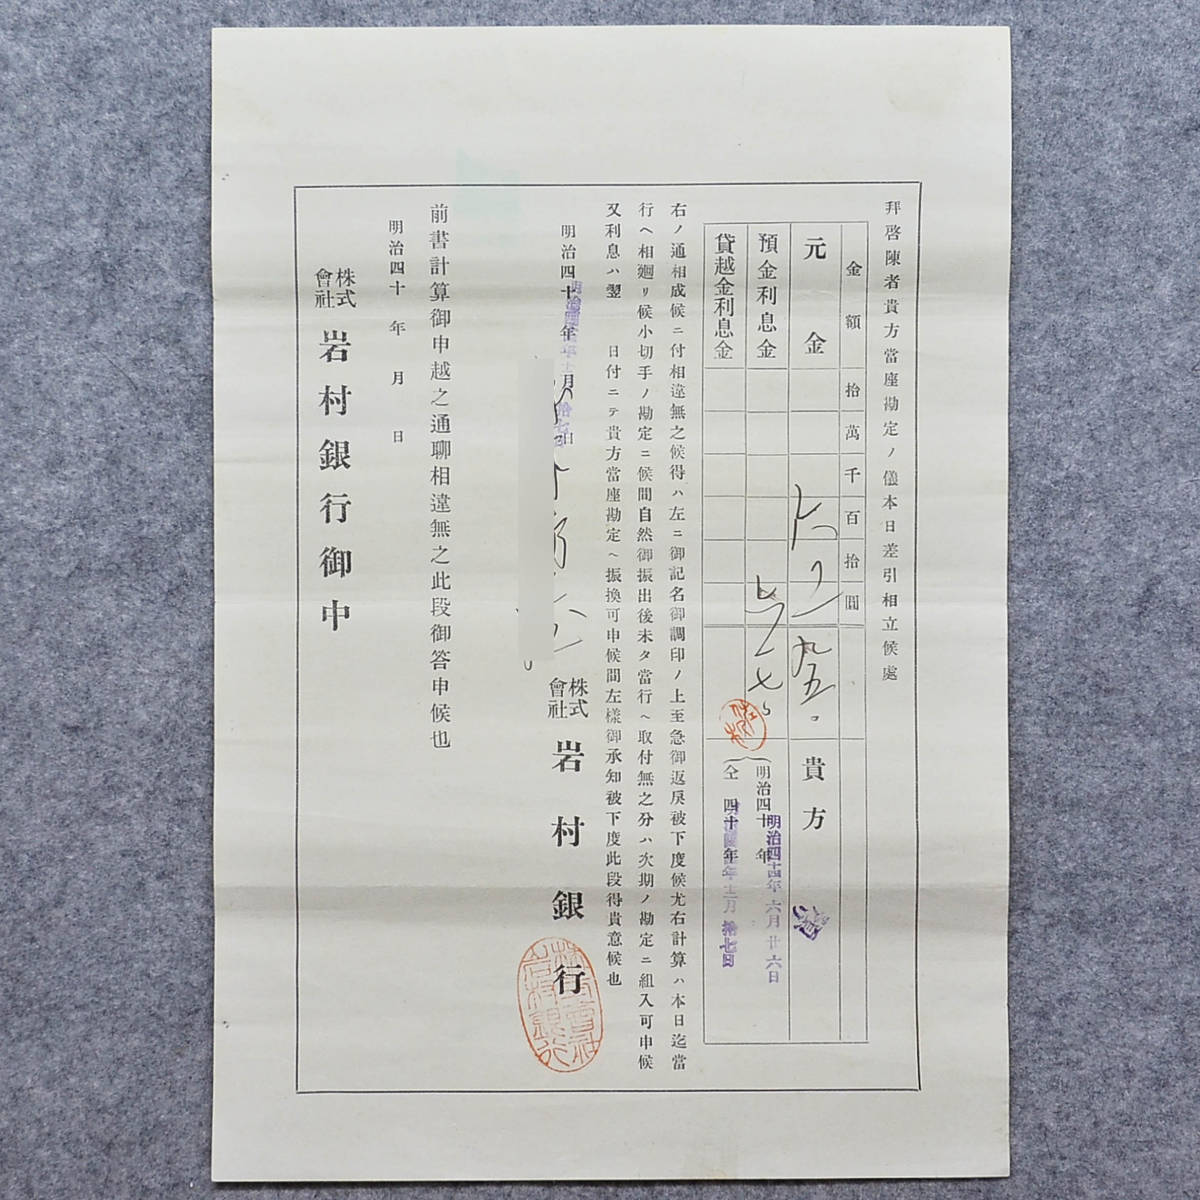 拜啓陳者貴方當座勘定ノ儀本日差引相立候處
金額 拾萬千百拾圓
元金 九五 貴方
預金利息金 七 明治四十年 明治四十四年六月廿六日
貸越金利息金 仝四十年 十二月拾七日
右ノ通相成候ニ付相違無之候得ハ左ニ御記名御調印ノ上至急御返戻被下度候尤右計算ハ本日迄當
行ヘ相廻リ候小切手ノ勘定ニ候間自然御振出後未タ當行ヘ取付無之分ハ次期ノ勘定ニ組入可申候
又利息ハ翌 日付ニテ貴方當座勘定ヘ振換可申候間左樣御承知被下度此段得貴意候也
明治四十年 月 日 十二月拾七日
株式會社 岩村銀行
株式會社岩村銀行
前書計算御申越之通聊相違無之此段御答申候也
明治四十 年 月 日
株式會社 岩村銀行御中